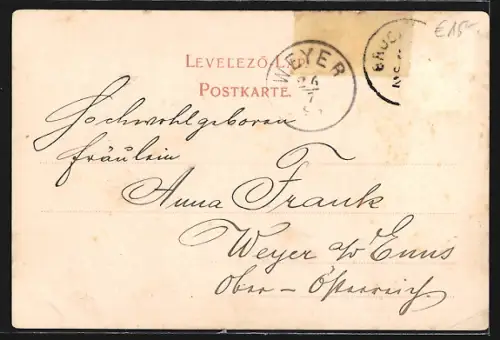 €15.-
LEVELEZŐ-L
POSTKARTE.
WEYER
BRUC
Hochwohlgeboren
Fräulein
Anna Frank
Weyer a/d Enns
Ober-Österreich.